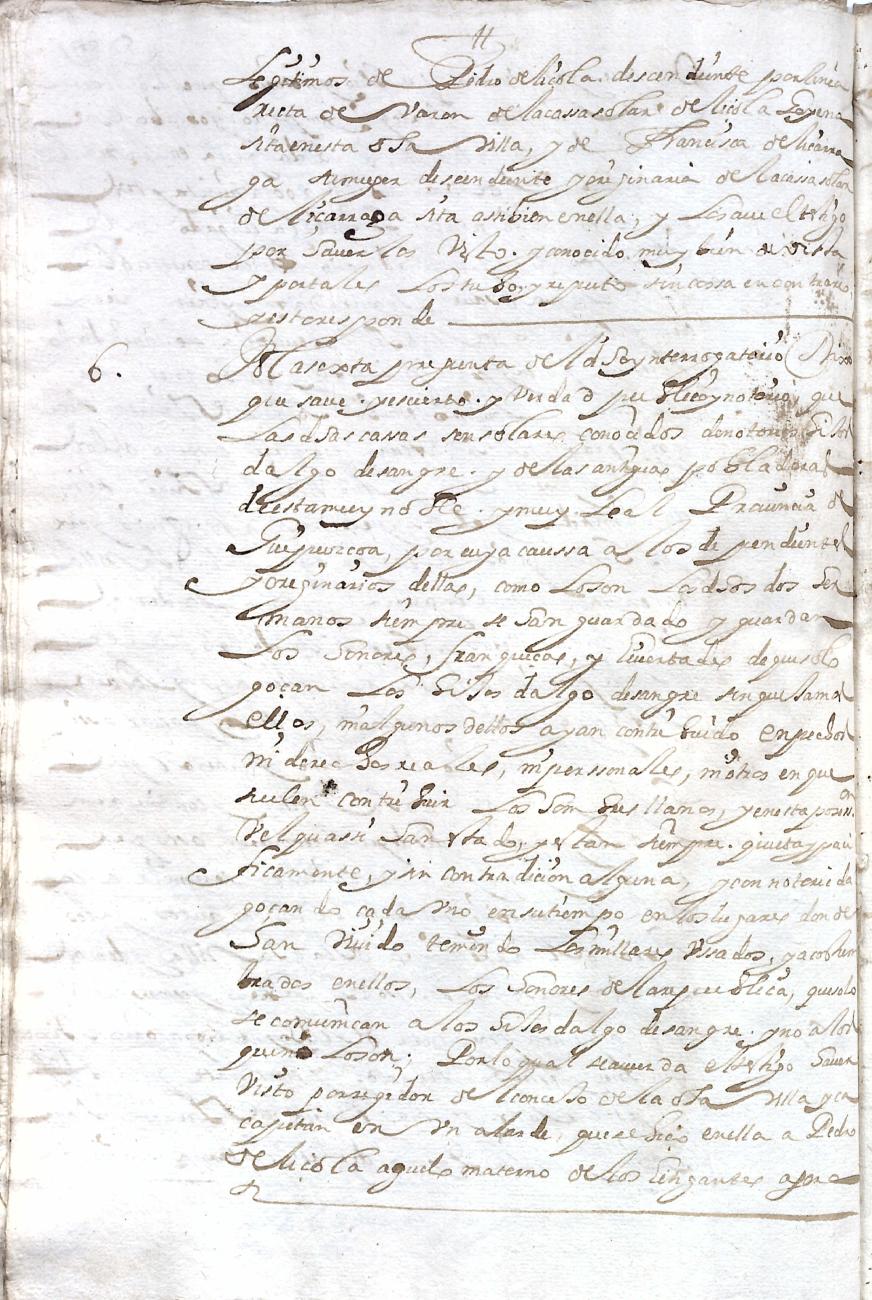 legitimos de Pedro de liçola descendiente por linea
recta de varon de la cassa solar de liçola
sita en esta dha Villa, y de Francisca de liçarra
ga su muger descendiente y originaria de la cassa solar
de liçarraga sita assibien en ella, y los que el tstigo
por haverlos visto y conocido muy bien de vista
y por tales los tubo, y reputo sin cossa en contrario
y esto responde
6. A la sexta pregunta del dho ynterrogatorio Dixo
que save y es cierto y verdad publico y notorio que
las dhas cassas son solares conocidos de notorios hijos
dalgo de sangre y de las antiguas pobladoras
de esta muy noble y muy Leal Prouincia de
Guipuzcoa, por cuya caussa a los dependientes
y originarios dellas, como lo son los dhos dos her
manos siempre se han guardado y guardan
los honores, franqueças, y livertades de que solo
goçan los hijos dalgo de sangre sin que jamas
ellos, ni algunos dellos ayan contribuido en pechos
ni derechos reales, ni perssonales, ni otros en que
suelen contribuir los hombres llanos, y en esta posesion
vel quassi han estado, y estan siempre quieta y paci
ficamente, y sin contradicion alguna, y con notorieda
goçando cada vno en su tiempo en los lugares donde
han viuido teniendo los millares vssados, y acostum
brados en ellos, los honores de la republica, que solo
se comunican a los hijos dalgo de sangre y no a los
que no lo son. Por lo qual se acuerda el tstigo haver
visto por regidor del concejo de la dha villa y ca
capitan en vn alarde, que se hiço en ella a Pedro
de liçola aguelo materno de los litigantes